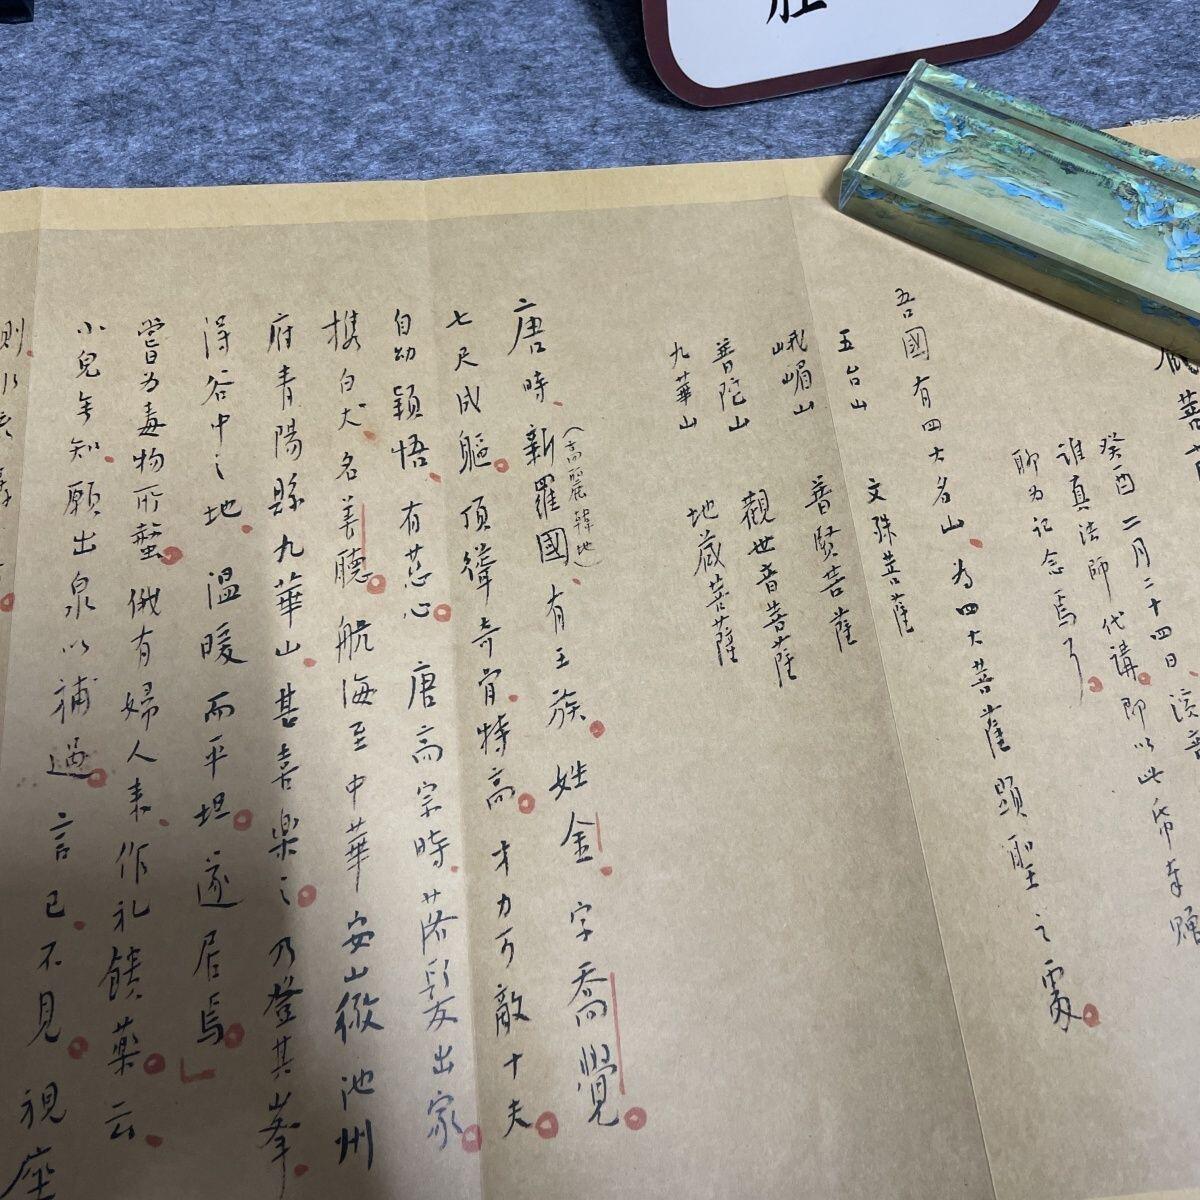 菩薩
癸酉二月二十四日、
誰真法師代講。即以此帋奉贈
聊为记念焉了。
吾國有四大名山、为四大菩薩顕聖之處。
五台山 文殊菩薩
峨嵋山 普賢菩薩
普陀山 觀世音菩薩
九華山 地藏菩薩
唐時、新羅國、（高麗韓地）有王族。姓金、字喬覺。
七尺成軀。頂聳奇骨、特高。才力可敵十夫。
自幼穎悟、有慈心。唐高宗時、落髮出家。
携白犬、名善聽。航海至中華安山徽池州
府青陽縣九華山、甚喜樂之。乃登其峯、
得谷中之地、溫暖而平坦。遂居焉。」
嘗为毒物所螫。俄有婦人来、作礼饋藥。云、
小兒無知、願出泉以補過。言已、不見。視座
則